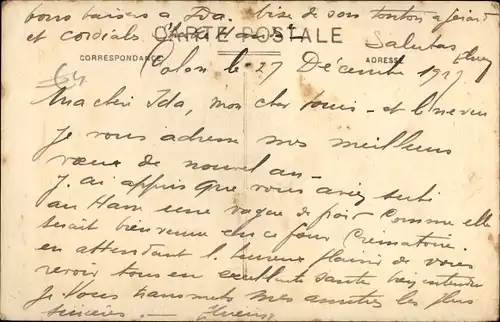 bons baisers a Ida. bise de son tonton a Gérard
et cordiales
CARTE POSTALE
Salutas
CORRESPONDANCE
ADRESSE
Colon le 27 Décembre 1927
Ma chère Ida, mon cher Louis - et le neveu
Je vous adresse mes meilleurs
vœux de nouvel an -
J'ai appris que vous aviez subi
au Havre une vague de froid - Comme elle
serait bienvenue en ce four Crématoire.
en attendant l'heureux plaisir de vous
revoir tous en excellente santé bien entendu
je vous transmets mes amitiés les plus
sincères. -